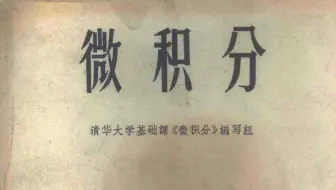 微积分
清华大学基础課《微积分》编写组